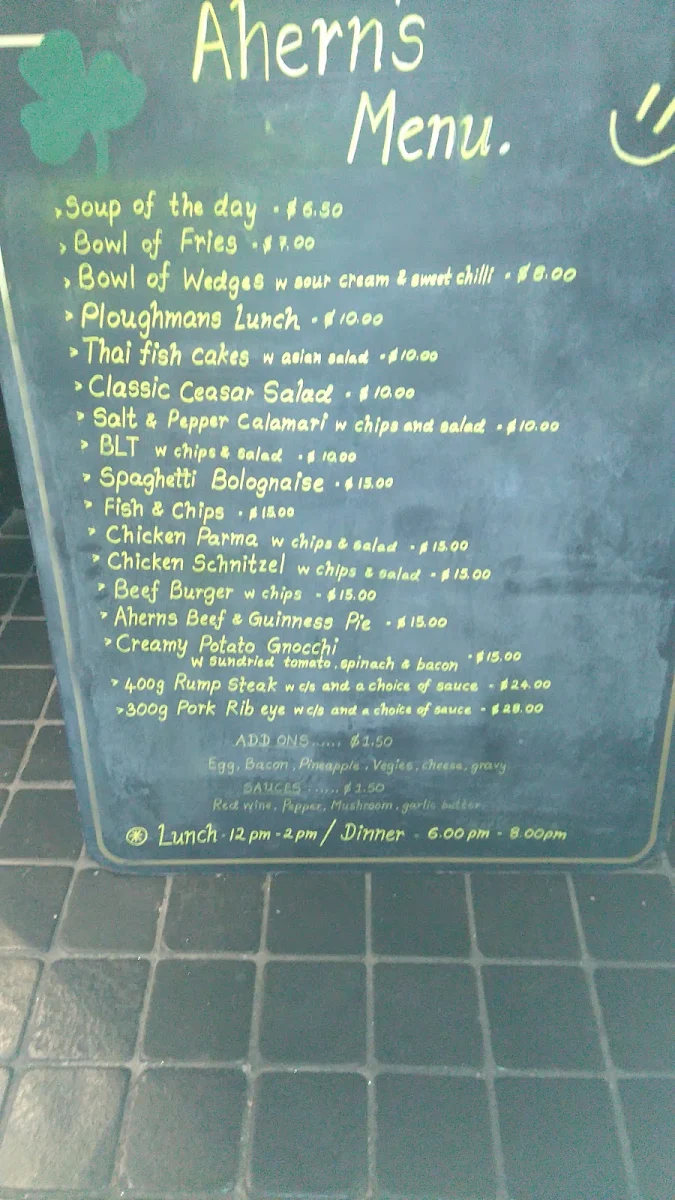 Ahern's
Menu.
> Soup of the day - $6.50
> Bowl of Fries - $7.00
> Bowl of Wedges w sour cream & sweet chilli - $8.00
> Ploughmans Lunch - $10.00
> Thai fish cakes w asian salad - $10.00
> Classic Ceasar Salad - $10.00
> Salt & Pepper Calamari w chips and salad - $10.00
> BLT w chips & salad - $10.00
> Spaghetti Bolognaise - $15.00
> Fish & Chips - $15.00
> Chicken Parma w chips & salad - $15.00
> Chicken Schnitzel w chips & salad - $15.00
> Beef Burger w chips - $15.00
> Aherns Beef & Guinness Pie - $15.00
> Creamy Potato Gnocchi
w sundried tomato, spinach & bacon - $15.00
> 400g Rump Steak w c/s and a choice of sauce - $24.00
> 300g Pork Rib eye w c/s and a choice of sauce - $28.00
ADD ONS...... $1.50
Egg, Bacon, Pineapple, Vegies, cheese, gravy
SAUCES ...... $1.50
Red wine, Pepper, Mushroom, garlic butter
Lunch - 12pm - 2pm / Dinner - 6.00pm - 8.00pm